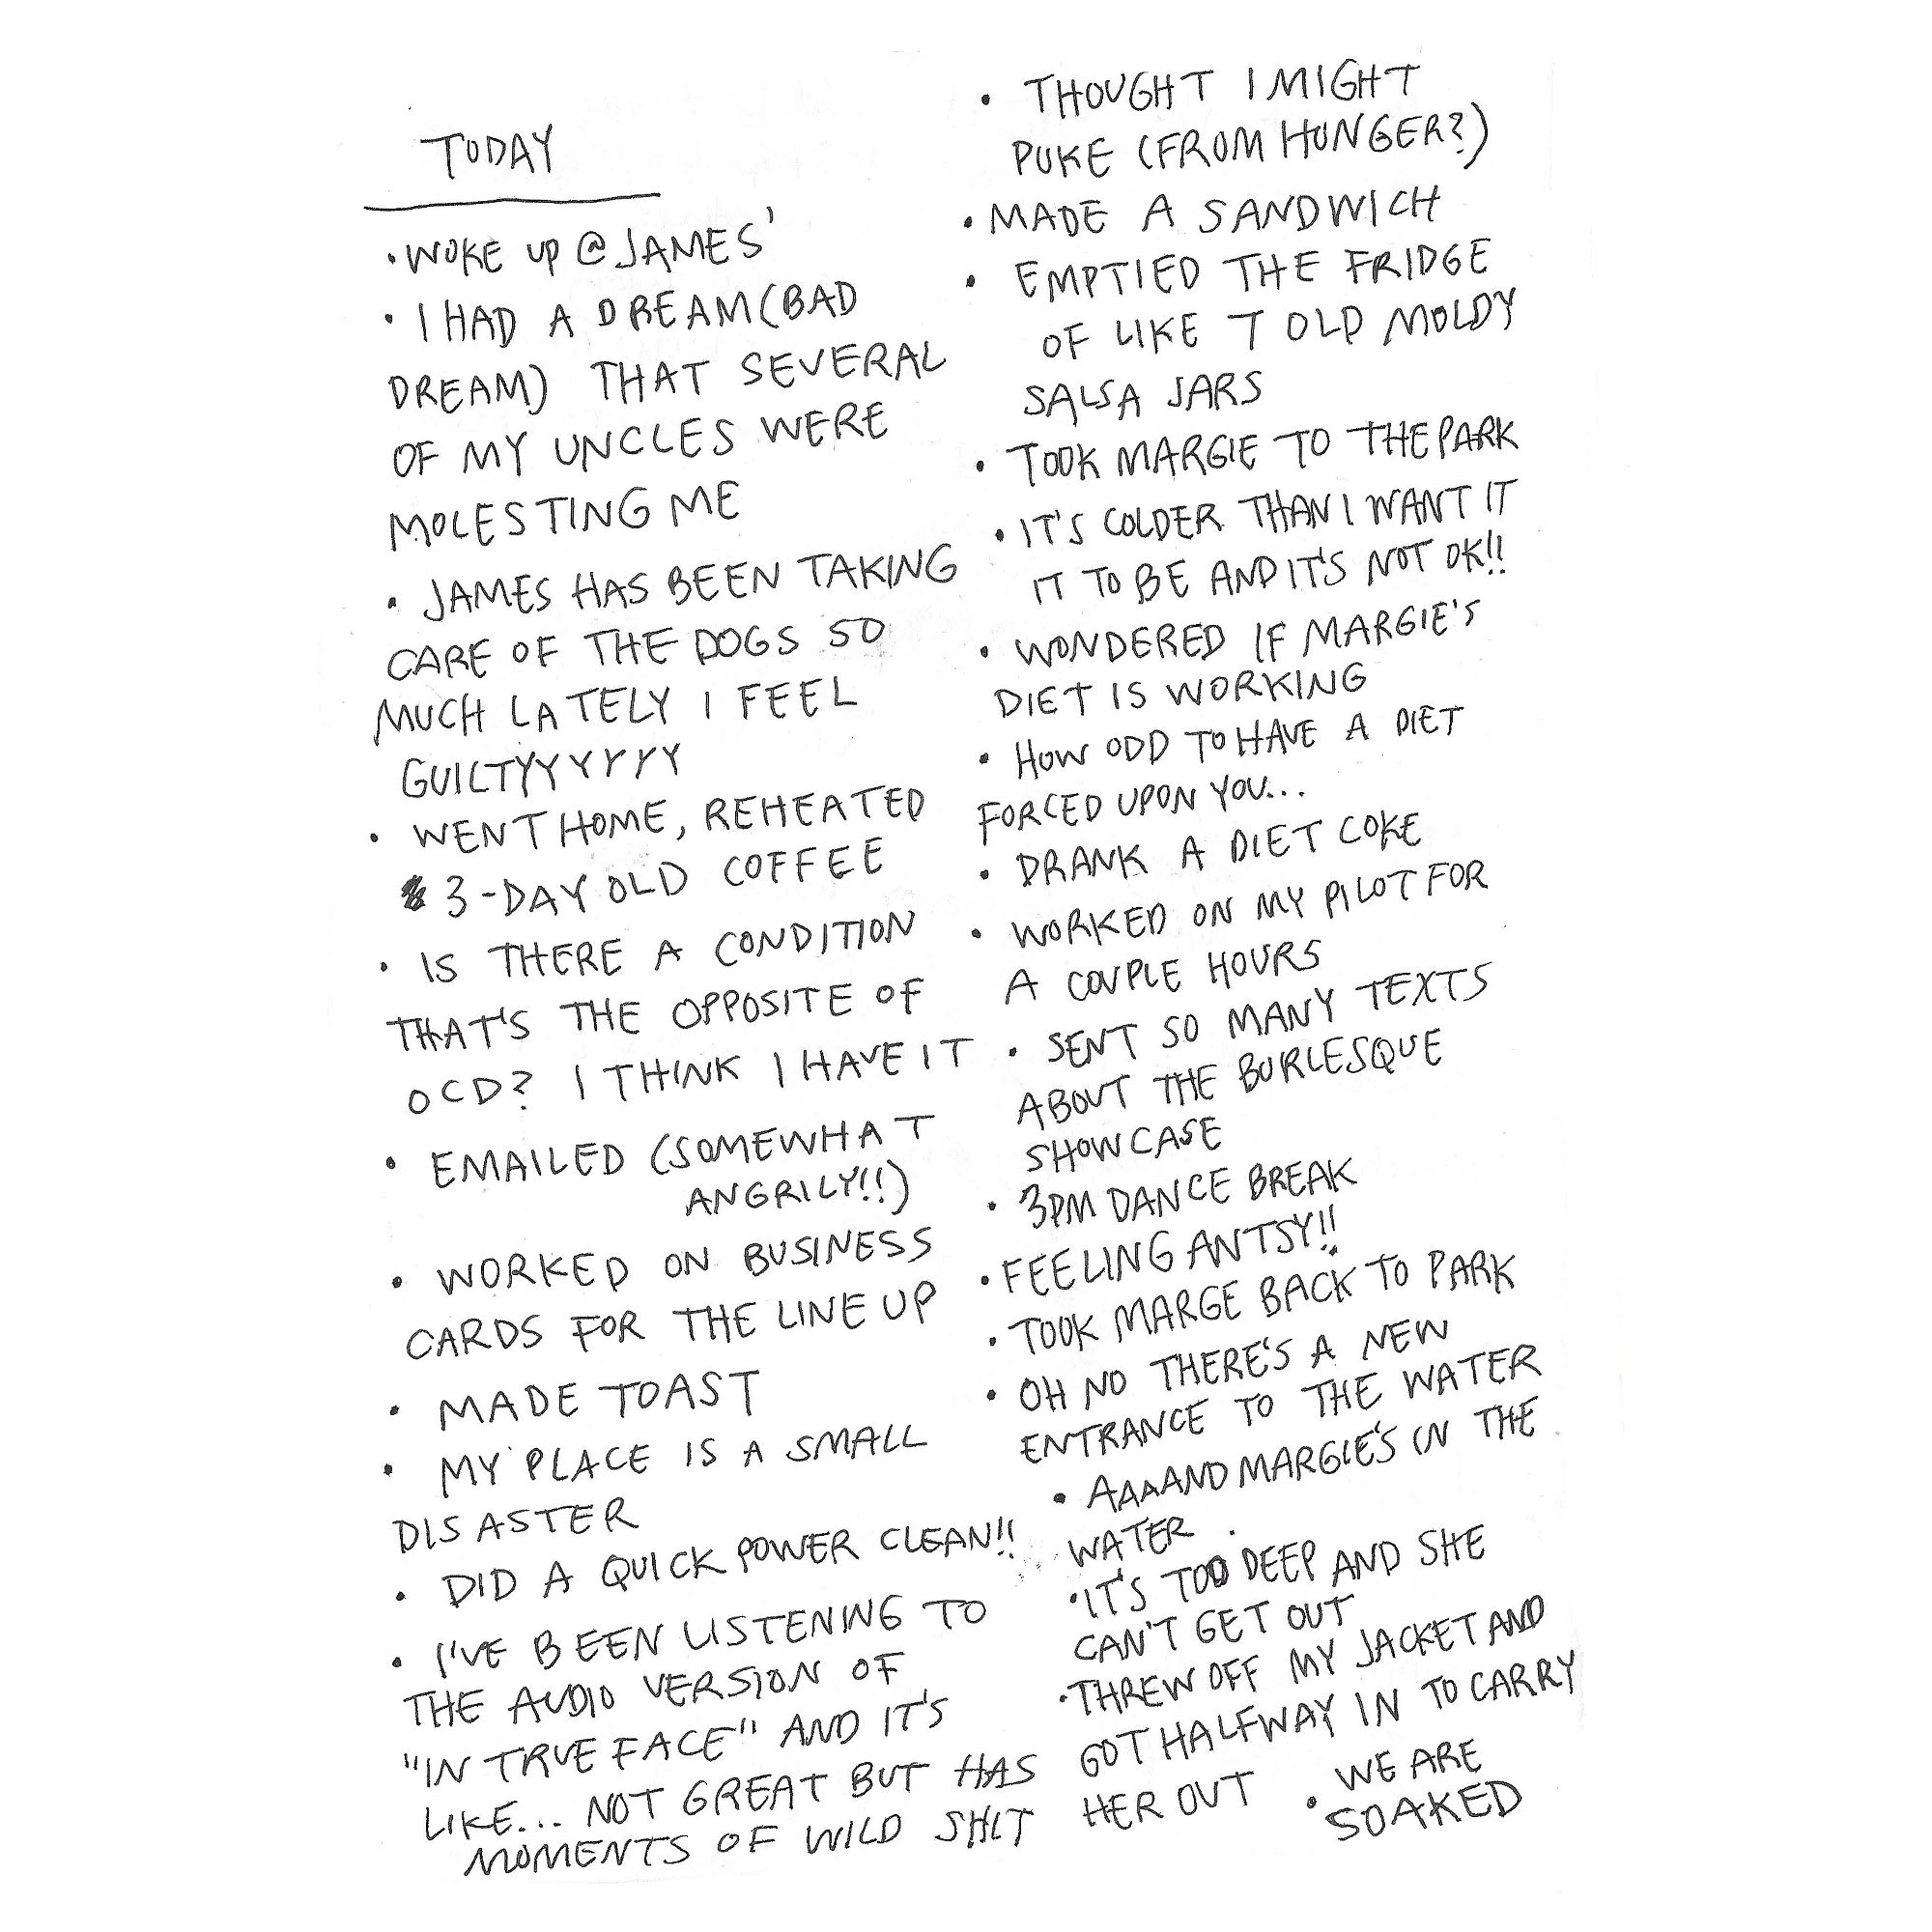 TODAY
• WOKE UP @ JAMES'
• I HAD A DREAM (BAD
DREAM) THAT SEVERAL
OF MY UNCLES WERE
MOLESTING ME
• JAMES HAS BEEN TAKING
CARE OF THE DOGS SO
MUCH LATELY I FEEL
GUILTYYYYYYY
• WENT HOME, REHEATED
3-DAY OLD COFFEE
• IS THERE A CONDITION
THAT'S THE OPPOSITE OF
OCD? I THINK I HAVE IT
• EMAILED (SOMEWHAT
ANGRILY!!)
• WORKED ON BUSINESS
CARDS FOR THE LINE UP
• MADE TOAST
• MY PLACE IS A SMALL
DISASTER
• DID A QUICK POWER CLEAN!!
• I'VE BEEN LISTENING TO
THE AUDIO VERSION OF
"IN TRUE FACE" AND IT'S
LIKE... NOT GREAT BUT HAS
MOMENTS OF WILD SHIT
• THOUGHT I MIGHT
PUKE (FROM HUNGER?)
• MADE A SANDWICH
• EMPTIED THE FRIDGE
OF LIKE 7 OLD MOLDY
SALSA JARS
• TOOK MARGIE TO THE PARK
• IT'S COLDER THAN I WANT IT
IT TO BE AND IT'S NOT OK!!
• WONDERED IF MARGIE'S
DIET IS WORKING
• HOW ODD TO HAVE A DIET
FORCED UPON YOU...
• DRANK A DIET COKE
• WORKED ON MY PILOT FOR
A COUPLE HOURS
• SENT SO MANY TEXTS
ABOUT THE BURLESQUE
SHOWCASE
• 3PM DANCE BREAK
• FEELING ANTSY!!
• TOOK MARGE BACK TO PARK
• OH NO THERE'S A NEW
ENTRANCE TO THE WATER
• AAAAND MARGIE'S IN THE
WATER
• IT'S TOO DEEP AND SHE
CAN'T GET OUT
• THREW OFF MY JACKET AND
GOT HALFWAY IN TO CARRY
HER OUT
• WE ARE
SOAKED